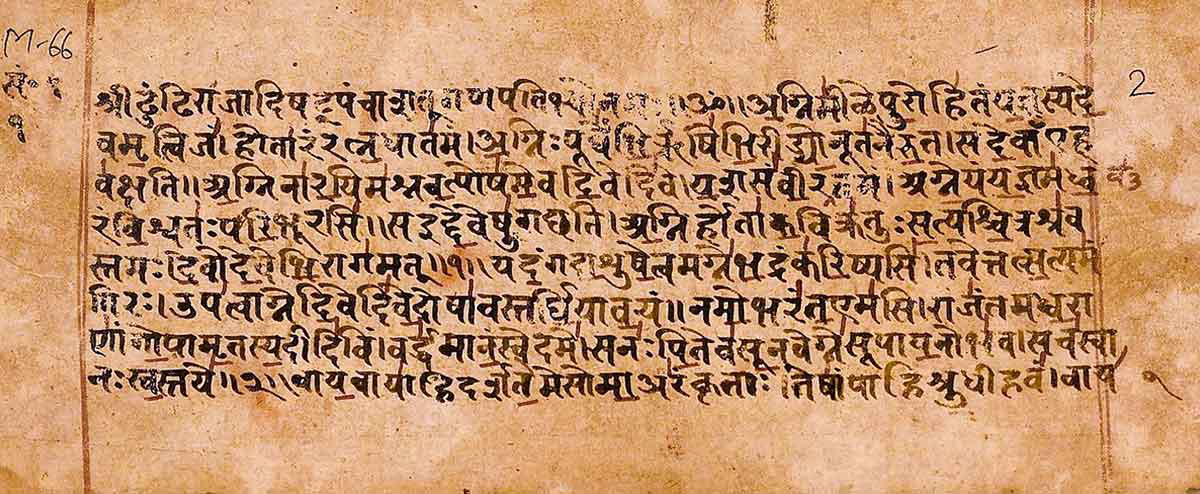 M-66
2
श्रीढुंढिराजादिषट्पंचाशत् गणपति ॥ॐ॥ अग्निमीळेपुरोहितंयज्ञस्यदे
वमृत्विजं।होतारंरत्नधातमं।अग्निःपूर्वेभिर्ऋषिभिरीड्योनूतनैरुत।सदेवाँएह
वक्षति॥अग्निनारयिमश्नवत्पोषमेवदिवेदिवे।यशसंवीरवत्तमं।अग्नेयंयज्ञमध्व
रंविश्वतःपरिभूरसि॥सइद्देवेषुगछति।अग्निर्होताकविक्रतुःसत्यश्चित्रश्रव
स्तमः।देवोदेवेभिरागमत्॥१॥यदंगदाशुषेत्वमग्नेभद्रंकरिष्यसि।तवेत्तत्सत्यमं
गिरः।उपत्वाग्नेदिवेदिवेदोषावस्तर्द्धियावयं॥नमोभरंतएमसि।राजंतमध्वरा
णांगोपामृतस्यदीदिविं।वर्द्धमानंस्वेदमे।सनःपितेवसूनवेग्नेसूपायनोभव।सचस्वा
नःस्वस्तये॥२॥वायवायाहिदर्शतेमेसोमाअरंकृताः।तेषांपाहिश्रुधीहवं।वाय